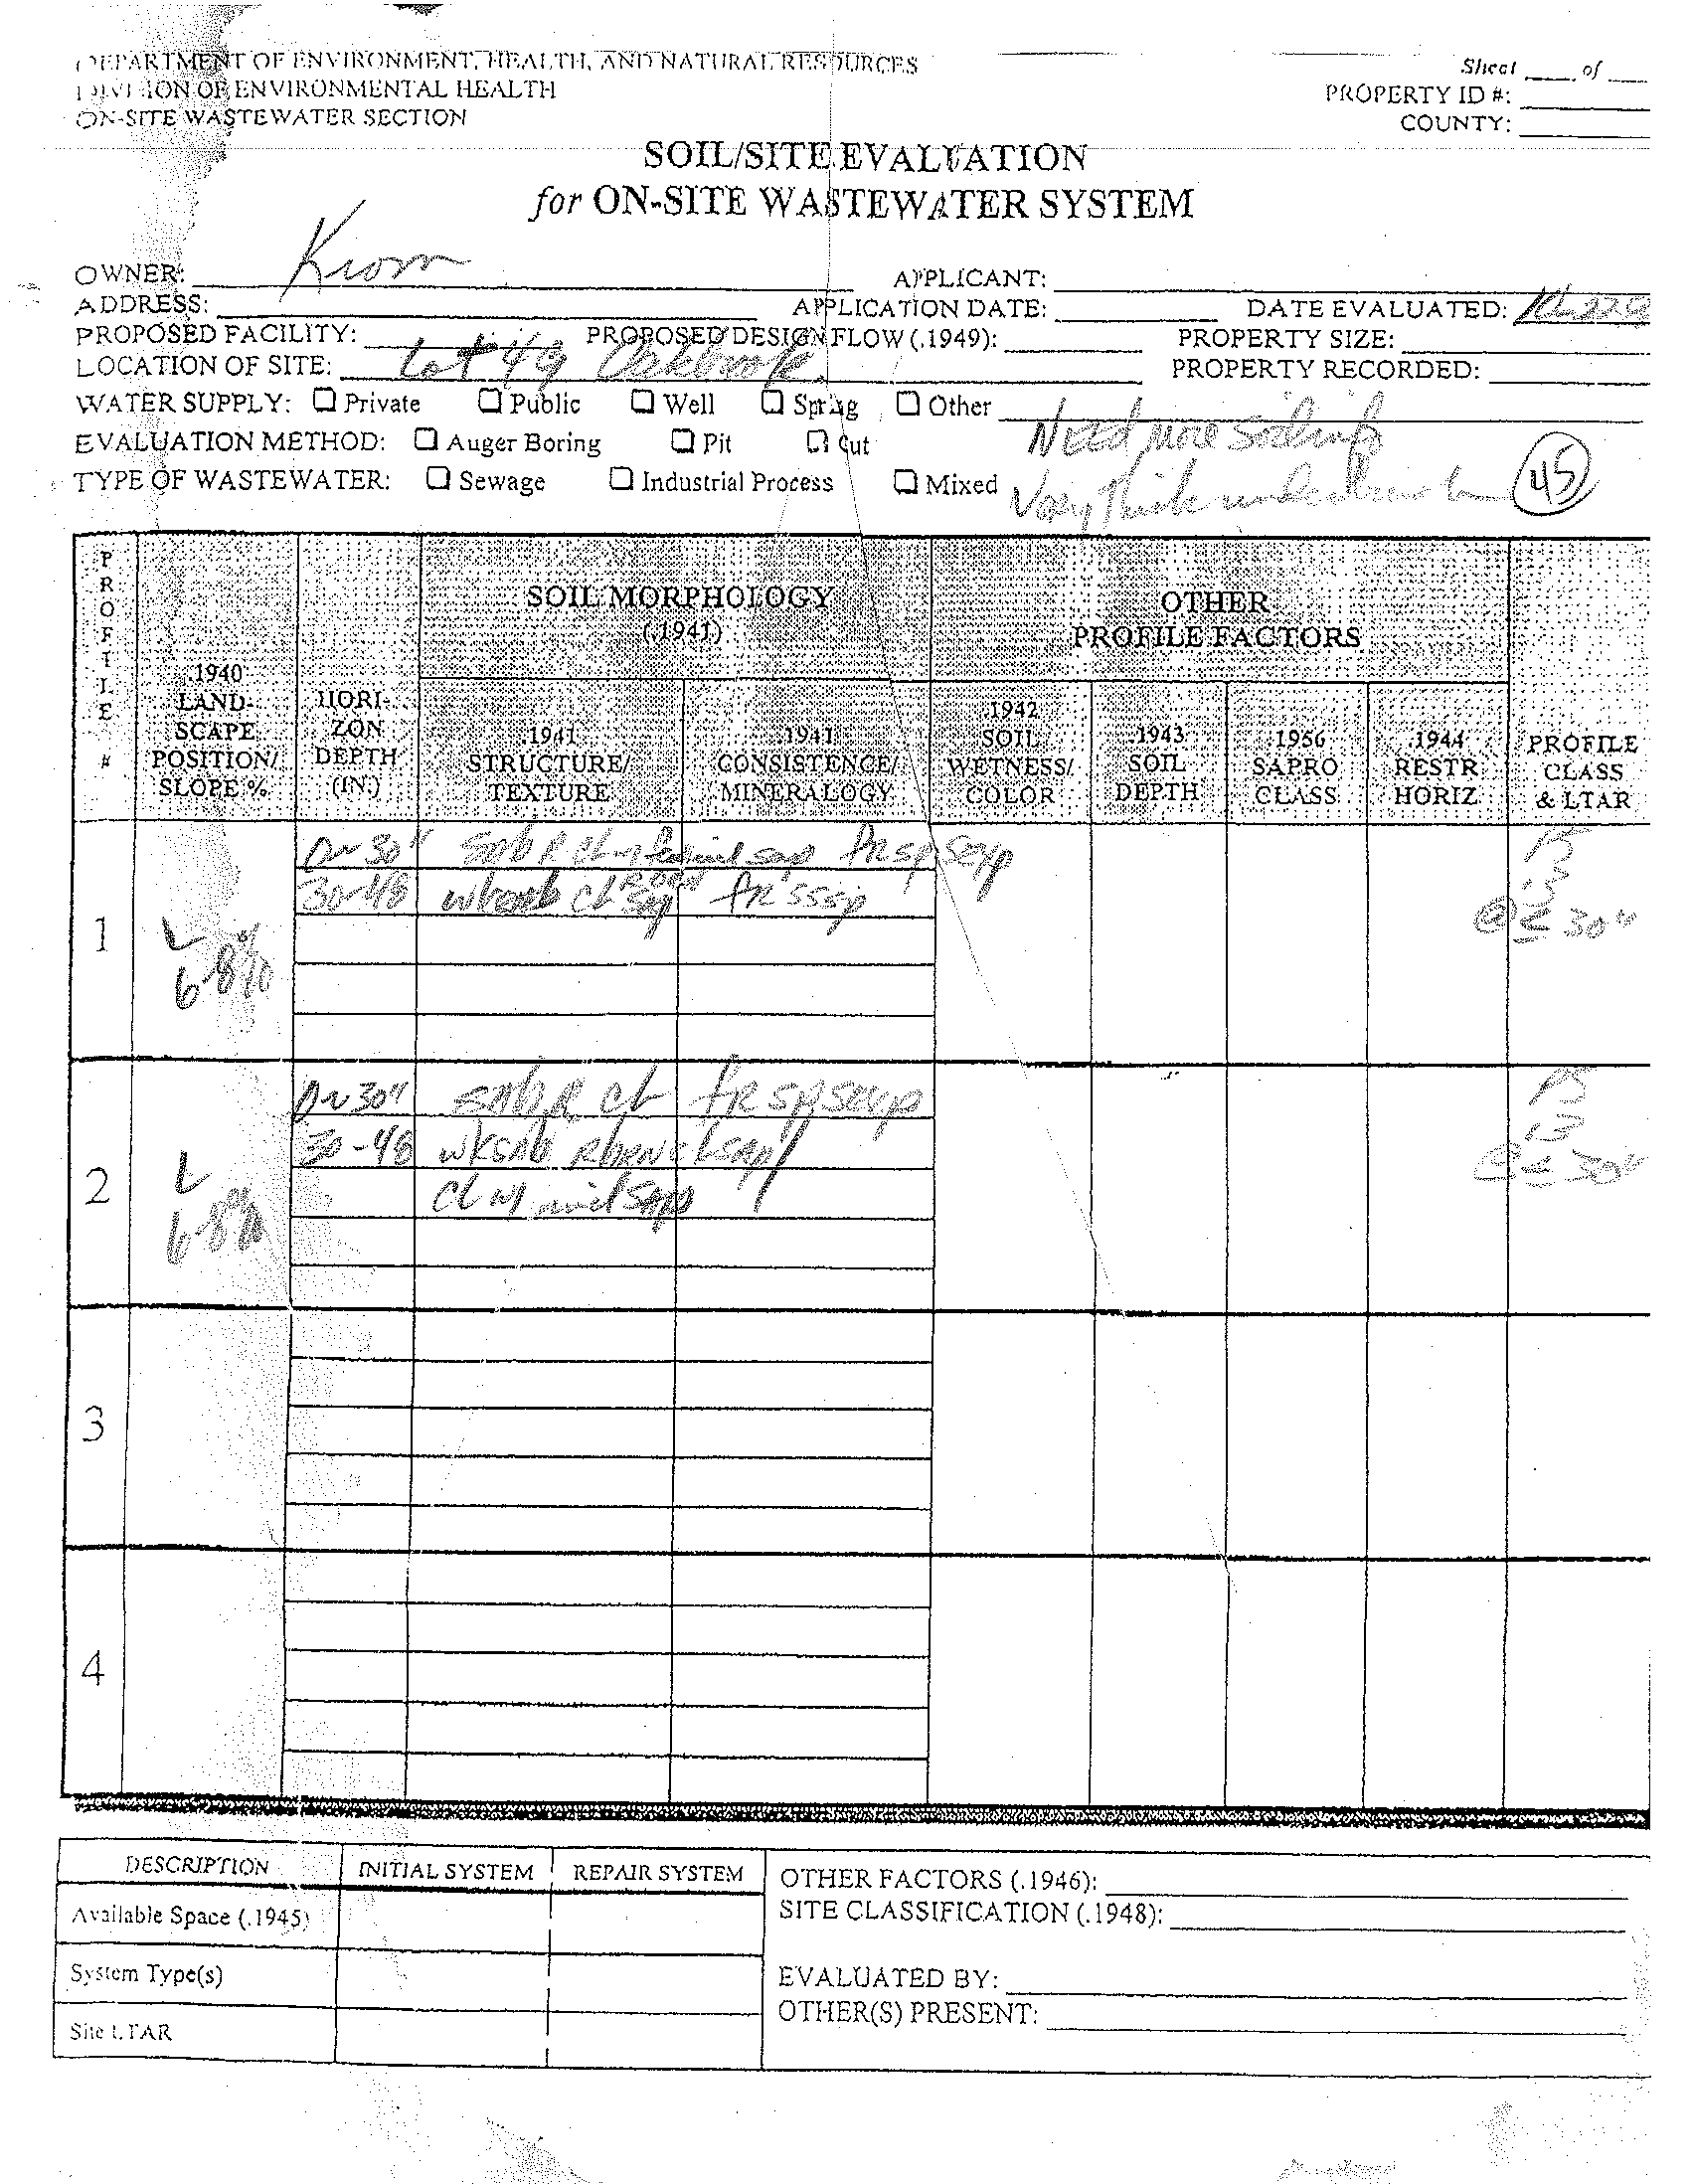 DEPARTMENT OF ENVIRONMENT, HEALTH, AND NATURAL RESOURCES
DIVISION OF ENVIRONMENTAL HEALTH
ON-SITE WASTEWATER SECTION
Sheet ____ of ____
PROPERTY ID #:
COUNTY:
SOIL/SITE EVALUATION
for ON-SITE WASTEWATER SYSTEM
OWNER: Krom
APPLICANT:
ADDRESS: APPLICATION DATE: DATE EVALUATED:
PROPOSED FACILITY: PROPOSED DESIGN FLOW (.1949): PROPERTY SIZE:
LOCATION OF SITE: Lot 49 Oakbrook PROPERTY RECORDED:
WATER SUPPLY: ☐ Private ☐ Public ☐ Well ☐ Spring ☐ Other
EVALUATION METHOD: ☐ Auger Boring ☐ Pit ☐ Cut Need more soil info
TYPE OF WASTEWATER: ☐ Sewage ☐ Industrial Process ☐ Mixed Very Thick 45
PROFILE #
.1940 LAND-SCAPE POSITION/ SLOPE %
HORI-ZON DEPTH (IN.)
SOIL MORPHOLOGY (.1941)
.1941 STRUCTURE/ TEXTURE
.1941 CONSISTENCE/ MINERALOGY
OTHER PROFILE FACTORS
.1942 SOIL WETNESS/ COLOR
.1943 SOIL DEPTH
.1956 SAPRO CLASS
.1944 RESTR HORIZ
PROFILE CLASS & LTAR
1
L
6-8%
30"
30-48
PS
.3
@ ≤ 30"
2
L
6-8%
30" sab R CL fr sp sexp
30-48 wksab
CL w/ sap
PS
.3
@ ≤ 30"
3
4
DESCRIPTION INITIAL SYSTEM REPAIR SYSTEM
Available Space (.1945)
System Type(s)
Site LTAR
OTHER FACTORS (.1946):
SITE CLASSIFICATION (.1948):
EVALUATED BY:
OTHER(S) PRESENT: